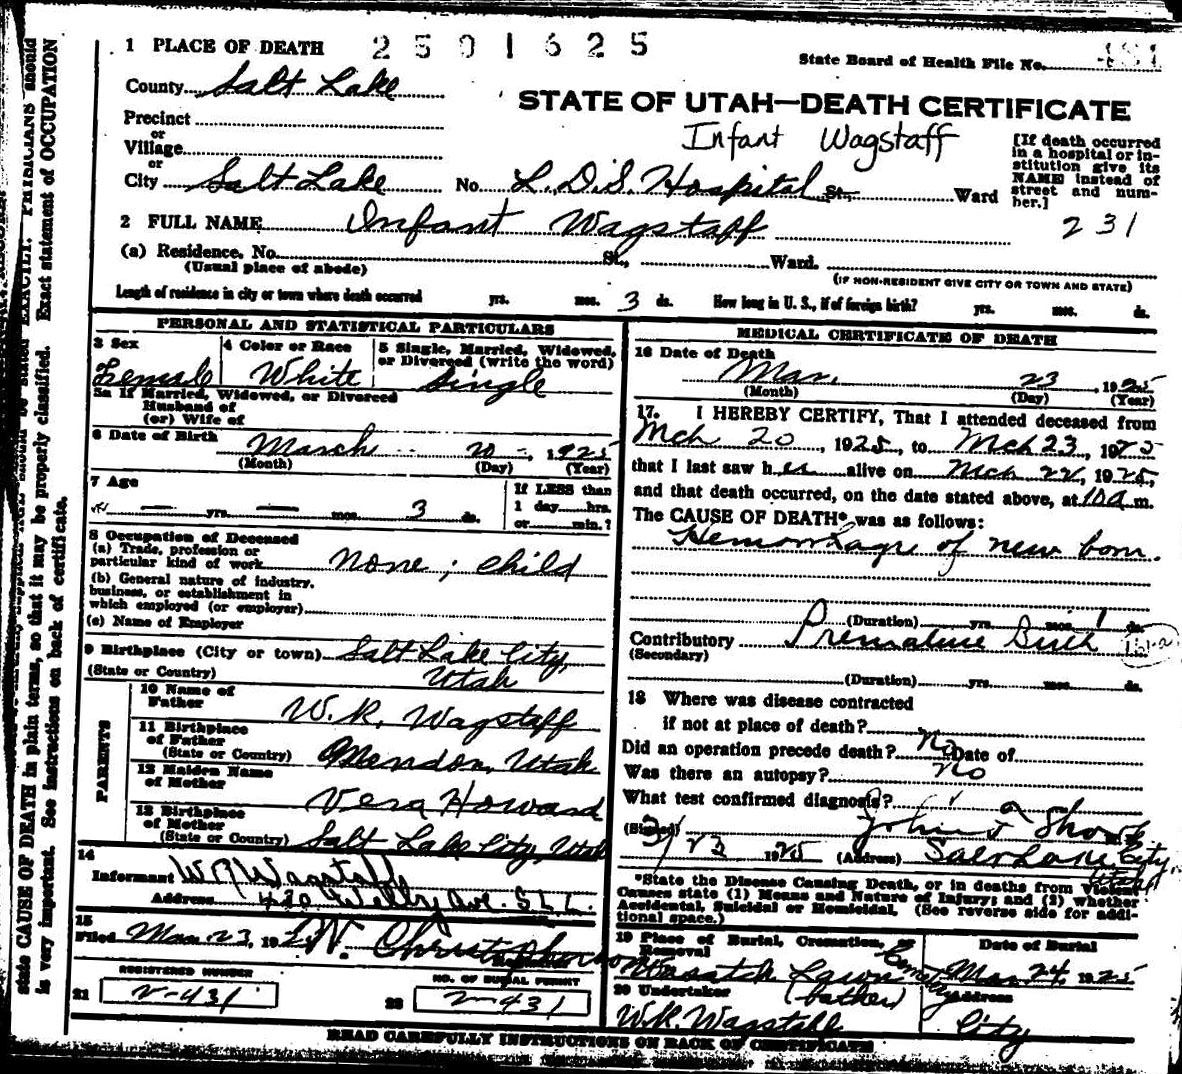 1 PLACE OF DEATH 2501625
State Board of Health File No.
County Salt Lake
STATE OF UTAH—DEATH CERTIFICATE
Precinct
or
Village
or
Infant Wagstaff
[If death occurred in a hospital or institution give its NAME instead of street and number.]
City Salt Lake No. L.D.S. Hospital St., Ward
231
2 FULL NAME Infant Wagstaff
(a) Residence, No. St., Ward.
(Usual place of abode) (IF NON-RESIDENT GIVE CITY OR TOWN AND STATE)
Length of residence in city or town where death occurred yrs. mos. 3 ds. How long in U. S., if of foreign birth? yrs. mos. ds.
PERSONAL AND STATISTICAL PARTICULARS
3 Sex Female
4 Color or Race White
5 Single, Married, Widowed, or Divorced (write the word) Single
5a If Married, Widowed, or Divorced
Husband of
(or) Wife of
6 Date of Birth March 20, 1925
(Month) (Day) (Year)
7 Age — yrs. — mos. 3 ds.
If LESS than
1 day hrs.
or min.?
8 Occupation of Deceased
(a) Trade, profession or
particular kind of work none; child
(b) General nature of industry,
business, or establishment in
which employed (or employer)
(c) Name of Employer
9 Birthplace (City or town) Salt Lake City,
(State or Country) Utah
PARENTS
10 Name of
Father W.R. Wagstaff
11 Birthplace
of Father
(State or Country) Mendon, Utah
12 Maiden Name
of Mother Vera Howard
13 Birthplace
of Mother
(State or Country) Salt Lake City, Utah
14
Informant W R Wagstaff
Address Ave. S L C.
15
Filed Mar 23, 192 W. Christopherson
REGISTERED NUMBER
21 V-431
NO. OF BURIAL PERMIT
22 V-431
MEDICAL CERTIFICATE OF DEATH
16 Date of Death
Mar. 23, 1925
(Month) (Day) (Year)
17. I HEREBY CERTIFY, That I attended deceased from
Mch 20, 1925, to Mch 23, 1925
that I last saw her alive on Mch 22, 1925,
and that death occurred, on the date stated above, at 10 a m.
The CAUSE OF DEATH* was as follows:
Hemorrhage of new born.
(Duration) yrs. mos. 1 ds.
Contributory Premature Birth
(Secondary)
(Duration) yrs. mos. ds.
18 Where was disease contracted
if not at place of death?
Did an operation precede death? No Date of
Was there an autopsy? no
What test confirmed diagnosis?
(Signed) John
3/23 1925 (Address) Salt Lake City, Utah
*State the Disease Causing Death, or in deaths from Violent
Causes state (1) Means and Nature of Injury; and (2) whether
Accidental, Suicidal or Homicidal. (See reverse side for addi-
tional space.)
19 Place of Burial, Cremation, or
Removal
Wasatch Lawn Cemetery
Date of Burial
Mar 24, 1925
20 Undertaker (father)
W.R. Wagstaff
Address
City
READ CAREFULLY INSTRUCTIONS ON BACK OF CERTIFICATE
state CAUSE OF DEATH in plain terms, so that it may be properly classified. Exact statement of OCCUPATION
is very important. See instructions on back of certificate.